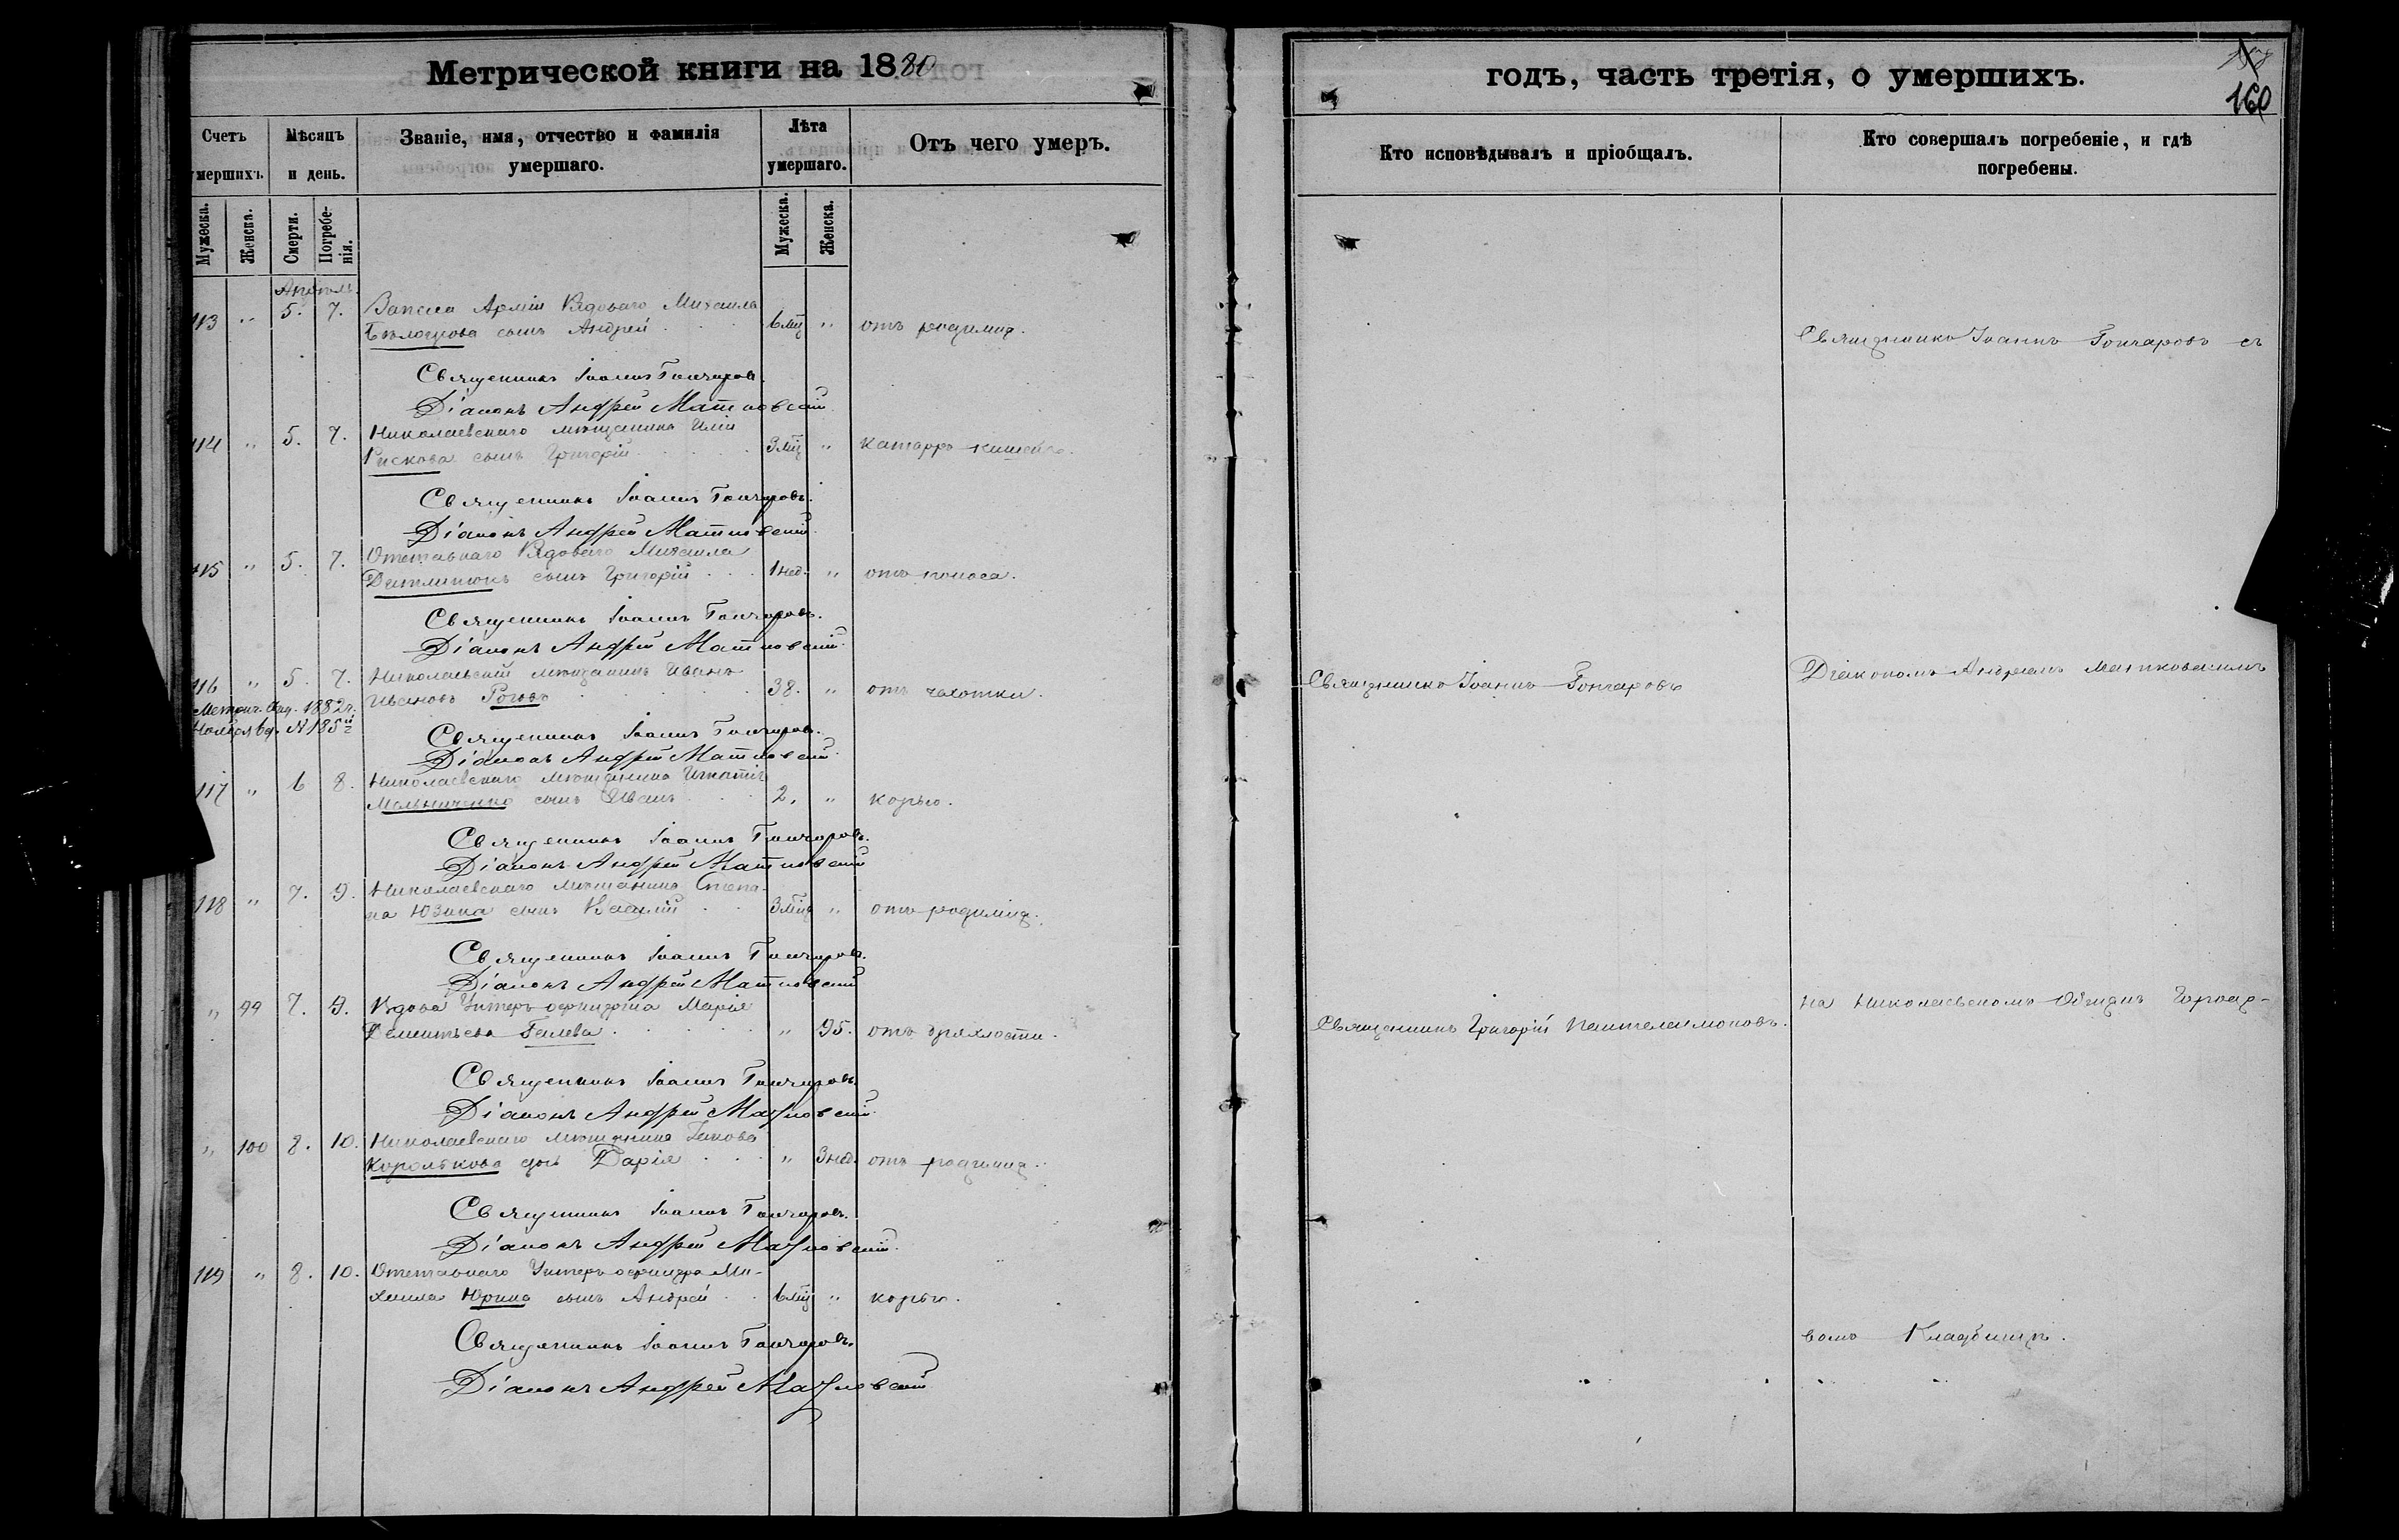 Метрической книги на 1880
Счетъ умершихъ.
Мѣсяцъ и день.
Званіе, имя, отчество и фамилія умершаго.
Лѣта умершаго.
Отъ чего умеръ.
Мужеска. Женска. Смерти. Погребенія. Мужеска. Женска.
Апрѣль.
113 " 5. 7. Запаса Арміи Рядоваго Михаила
сынъ Андрей 6 мц " отъ родимца.
Священникъ Іоаннъ Гончаровъ.
Діаконъ Андрей Матковскій.
114 " 5. 7. Николаевскаго мѣщанина Иліи
Рискова сынъ Григорій 3 мц " катарръ кишекъ.
Священникъ Іоаннъ Гончаровъ.
Діаконъ Андрей Матковскій.
115 " 5. 7. Отставнаго Рядоваго Михаила
сынъ Григорій 1 нед. " отъ поноса.
Священникъ Іоаннъ Гончаровъ.
Діаконъ Андрей Матковскій.
116 " 5. 7. Николаевскій мѣщанинъ Иванъ
Ивановъ Роговъ 38. " отъ чахотки.
Метрич. 1882 г.
Ноября 6 д. № 185
Священникъ Іоаннъ Гончаровъ.
Діаконъ Андрей Матковскій.
117 " 6 8. Николаевскаго мѣщанина Игнатія
Мельниченко сынъ Иванъ 2. " корью.
Священникъ Іоаннъ Гончаровъ.
Діаконъ Андрей Матковскій
118 " 7. 9. Николаевскаго мѣщанина Степа-
на Юзина сынъ Василій 3 мц " отъ родимца.
Священникъ Іоаннъ Гончаровъ.
Діаконъ Андрей Матковскій
" 99 7. 9. Вдова Унтеръ-офицера Марія
Дементьева Галева " 95. отъ дряхлости.
Священникъ Іоаннъ Гончаровъ.
Діаконъ Андрей Матковскій.
" 100 8. 10. Николаевскаго мѣщанина Іакова
Королькова дочь Дарія " 3 нед. отъ родимца.
Священникъ Іоаннъ Гончаровъ.
Діаконъ Андрей Матковскій.
119 " 8. 10. Отставнаго Унтеръ-офицера Ми-
хаила Юрина сынъ Андрей 6 мц " корью.
Священникъ Іоаннъ Гончаровъ.
Діаконъ Андрей Матковскій
годъ, часть третія, о умершихъ.
160
Кто исповѣдывалъ и пріобщалъ.
Кто совершалъ погребеніе, и гдѣ погребены.
Священникъ Іоаннъ Гончаровъ съ
Священникъ Іоаннъ Гончаровъ
Діакономъ Андреемъ Матковскимъ
Священникъ Григорій Пантелеимоновъ.
на Николаевскомъ Общемъ Городс-
комъ Кладбищѣ.